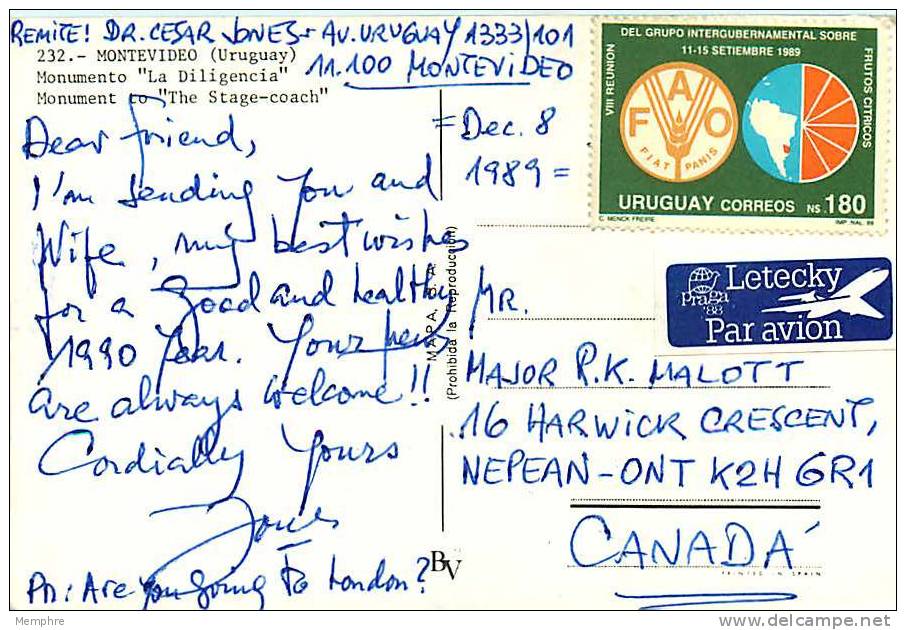 REMITE! DR. CESAR JONES - AV. URUGUAY 1333/101
11.100 MONTEVIDEO
232.- MONTEVIDEO (Uruguay)
Monumento "La Diligencia"
Monument to "The Stage-coach"
= Dec. 8
1989 =
Dear friend,
I'm sending you and
Wife, my best wishes
for a good and healthy
1990 year. Your news
are always welcome!!
Cordially yours
Jones
PD: Are you going to London?
M A P A , S. A.
(Prohibida la Reproducción)
BV
VIII REUNION
DEL GRUPO INTERGUBERNAMENTAL SOBRE
11-15 SETIEMBRE 1989
FRUTOS CITRICOS
FAO
FIAT PANIS
URUGUAY CORREOS N$ 180
C. MENCK FREIRE
IMP. NAL. 89
Praga '88
Letecky
Par avion
MR.
MAJOR R.K. MALOTT
16 HARWICK CRESCENT,
NEPEAN-ONT K2H 6R1
CANADÁ
PRINTED IN SPAIN
Memphre
delcampe.net